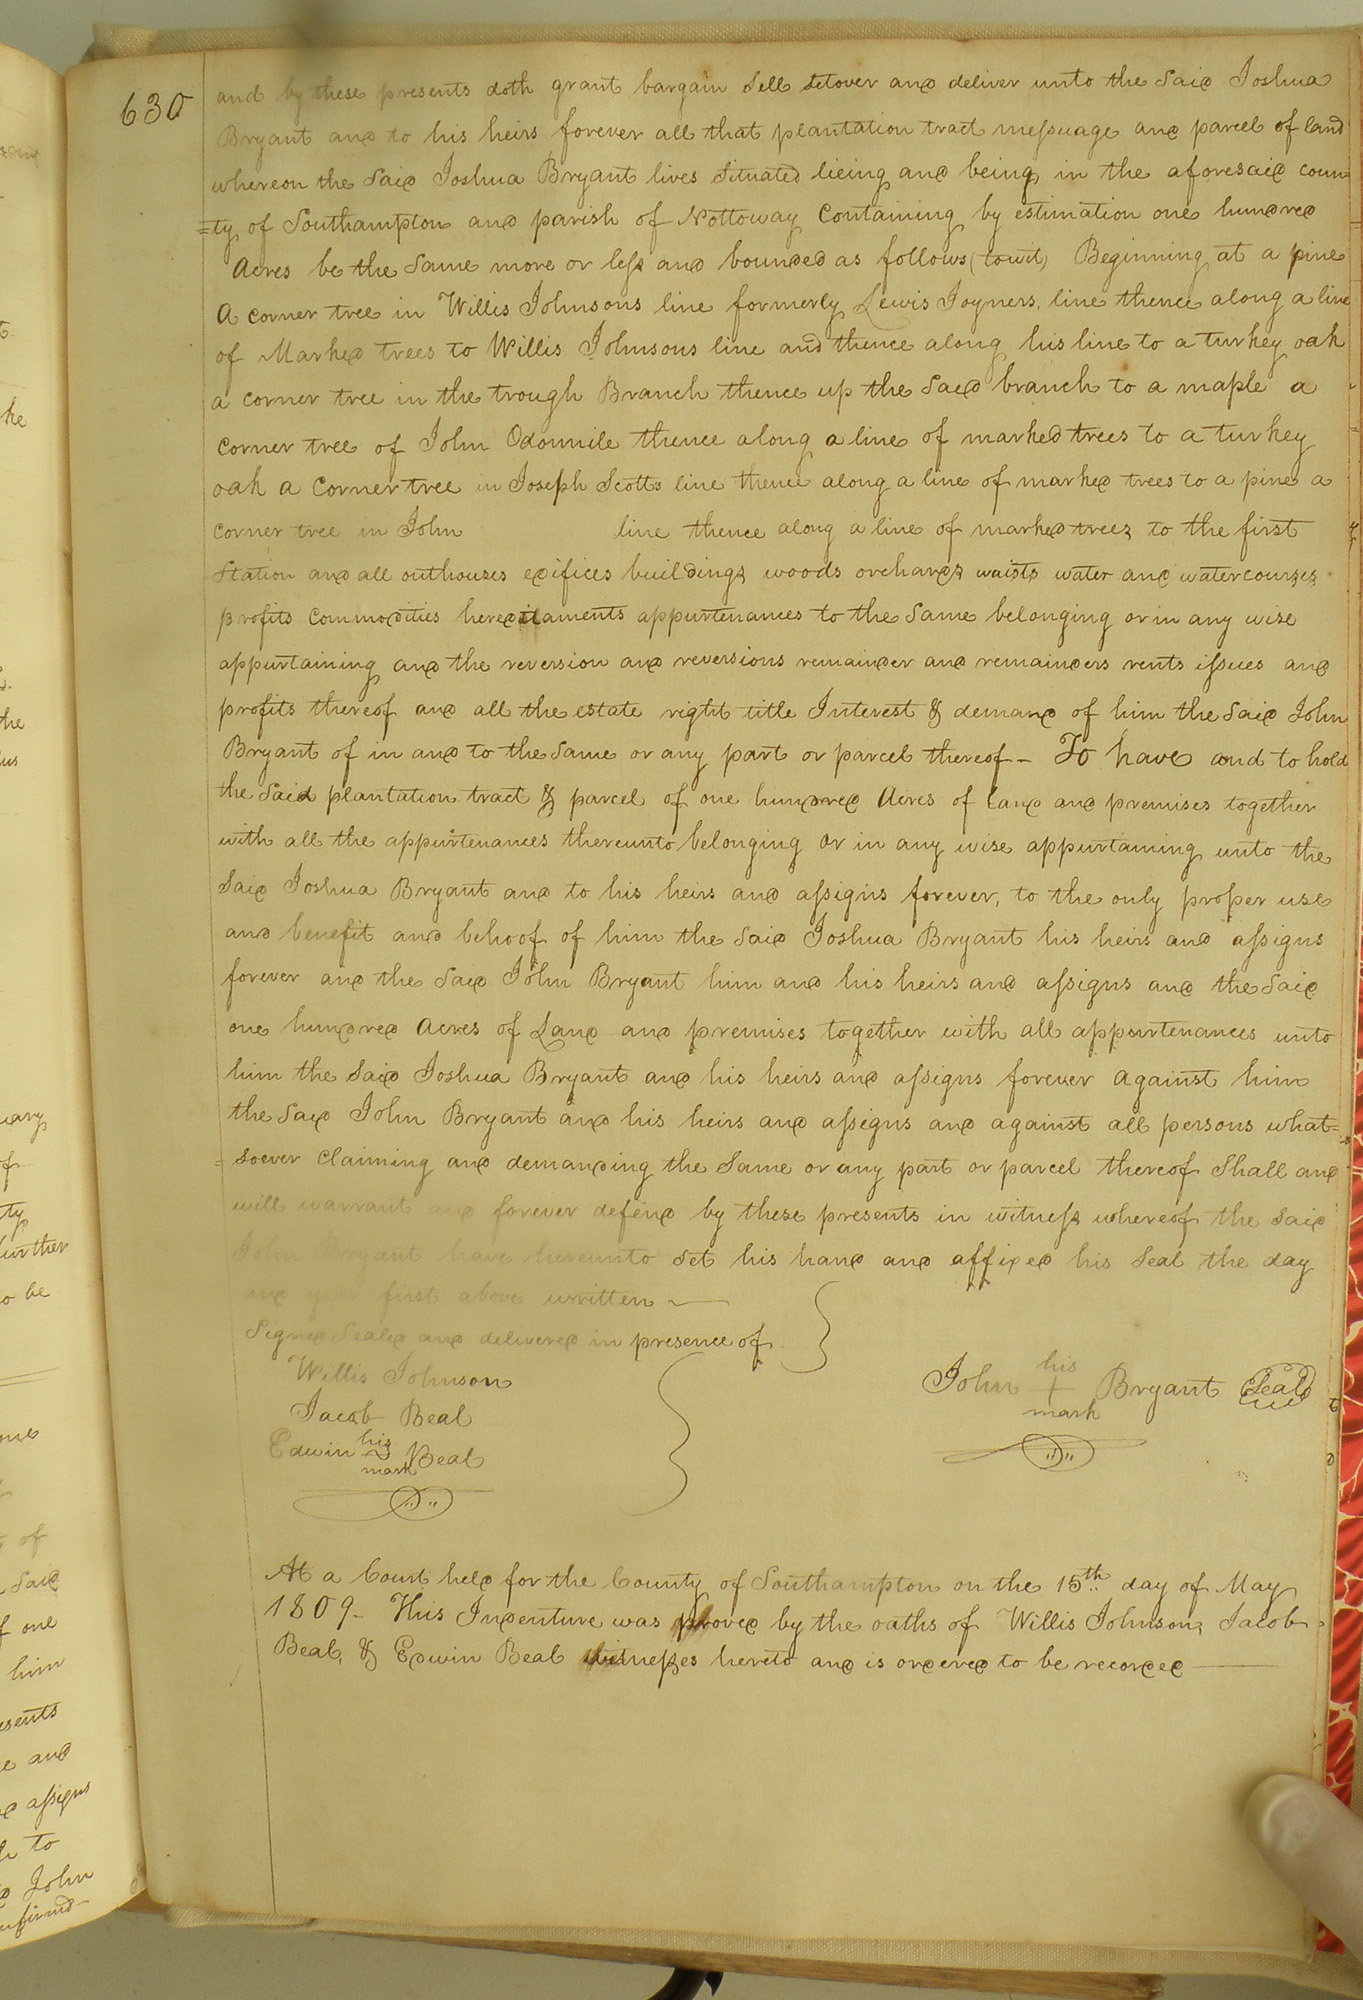 630
and by these presents doth grant bargain Sell Setover and deliver unto the Said Joshua
Bryant and to his heirs forever all that plantation tract messuage and parcel of land
whereon the Said Joshua Bryant lives Situated lieing and being in the aforesaid coun
=ty of Southampton and parish of Nottoway Containing by estimation one hundred
Acres be the Same more or less and bounded as follows (towit) Beginning at a pine
A corner tree in Willis Johnsons line formerly Lewis Joyners, line thence along a line
of Marked trees to Willis Johnsons line and thence along his line to a turkey oak
a corner tree in the trough Branch thence up the Said branch to a maple a
corner tree of John Odonnile thence along a line of marked trees to a turkey
oak a Corner tree in Joseph Scotts line thence along a line of marked trees to a pine a
corner tree in John line thence along a line of marked trees to the first
Station and all outhouses edifices buildings woods orchards waists water and watercourses
profits Commodities hereditaments appurtenances to the Same belonging or in any wise
appurtaining and the reversion and reversions remainder and remainders rents issues and
profits thereof and all the estate right title Interest & demand of him the Said John
Bryant of in and to the Same or any part or parcel thereof - To have and to hold
the Said plantation tract & parcel of one hundred Acres of land and premises together
with all the appurtenances thereunto belonging or in any wise appurtaining unto the
Said Joshua Bryant and to his heirs and assigns forever, to the only proper use
and benefit and behoof of him the Said Joshua Bryant his heirs and assigns
forever and the Said John Bryant him and his heirs and assigns and the Said
one hundred Acres of Land and premises together with all appurtenances unto
him the Said Joshua Bryant and his heirs and assigns forever against him
the Said John Bryant and his heirs and assigns and against all persons what=
=soever Claiming and demanding the Same or any part or parcel thereof Shall and
will warrant and forever defend by these presents in witness whereof the Said
John Bryant have hereunto Set his hand and affixed his Seal the day
and year first above written
Signed Sealed and delivered in presence of
Willis Johnson
Jacob Beal
Edwin his mark Beal
John his + mark Bryant Seal
At a Court held for the County of Southampton on the 15th day of May
1809- This Indenture was proved by the oaths of Willis Johnson, Jacob
Beal, & Edwin Beal witnesses hereto and is ordered to be recorded